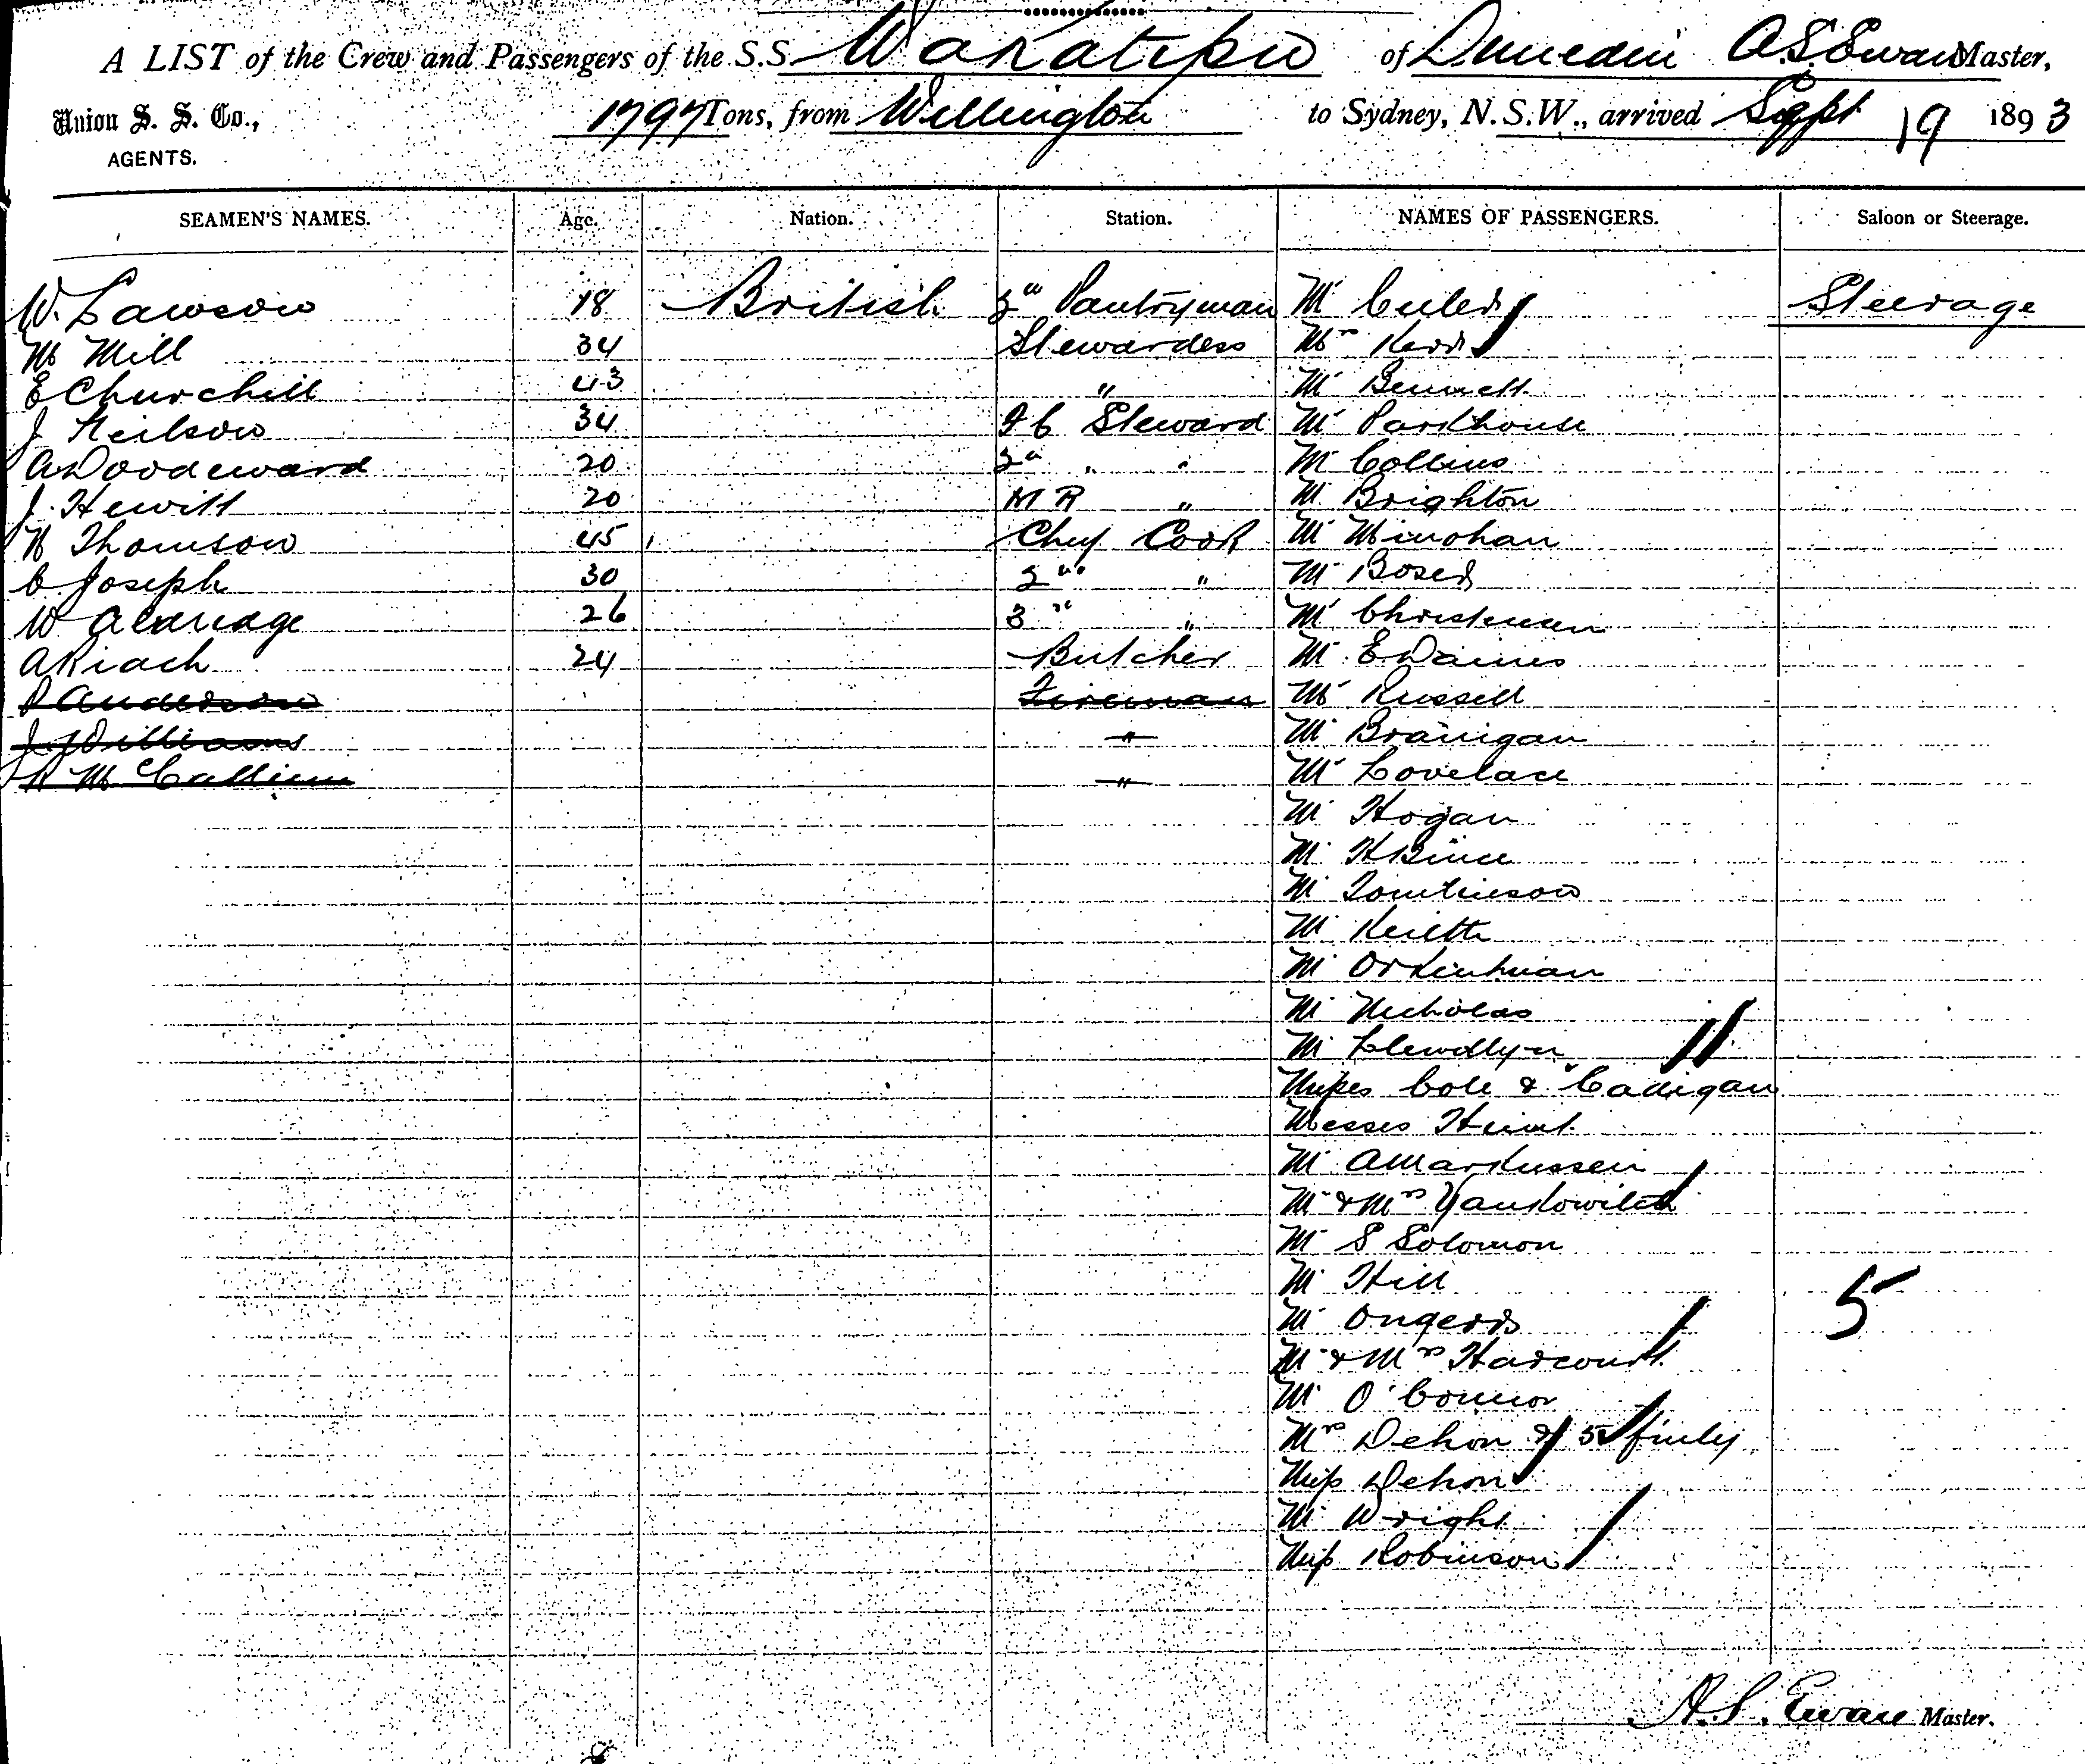 A LIST of the Crew and Passengers of the S.S. Wakatipu of Dunedin A.S. Ewan Master,
Union S. S. Co., 1797 Tons, from Wellington to Sydney, N.S.W., arrived Sept 19 1893
AGENTS.
SEAMEN'S NAMES. Age. Nation. Station. NAMES OF PASSENGERS. Saloon or Steerage.
W. Lawson 18 British 3" Pantryman Mr Steerage
M Mill 34 Stewardess Mrs Kerr
E Churchill 43 " Mr Bennett
J Neilson 34 F C Steward Mr Parkhouse
A Woodeward 20 2" " " Mr Collins
J. Hewitt 20 M R " Mr Brighton
N Thomson 45 Chef Cook Mr Minohan
C Joseph 30 2" " Mr Boser
W Aldridge 26 3" " Mr Christensen
A Riach 24 Butcher Mr E Daines
P Anderson Fireman Mr Russell
J. Williams " Mr Branigan
McCallum " Mr Lovelace
Mr Hogan
Mr H Bince
Mr Tomlinson
Mr Keith
Mr
Mr Nicholas
Mr Llewellyn
Misses Cole & Cadigan
Messes Hunt
Mr A Markussen
Mr & Mrs Yankowitch
Mr S Solomon
Mr Hill 5
Mr Ongers
Mr & Mrs Harcourt
Mr O'Connor
Mrs Dehon & 5 fmly
Miss Dehon
Mr Wright
Miss Robinson
A.S. Ewan Master.